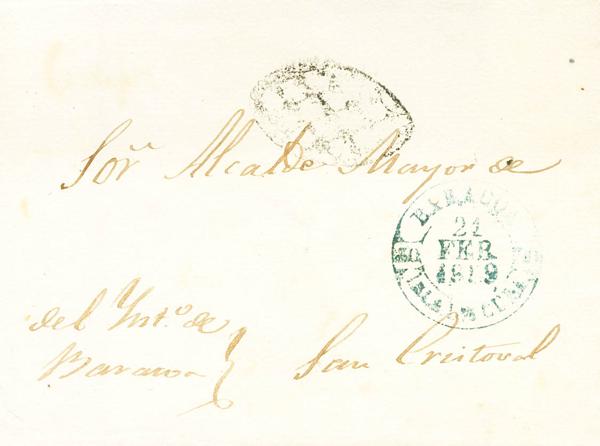 Sor. Alcalde Mayor de
BARACOA
21
FEB
1819
ISLA DE CUBA
del Ynto. de
Baracoa
San Cristoval